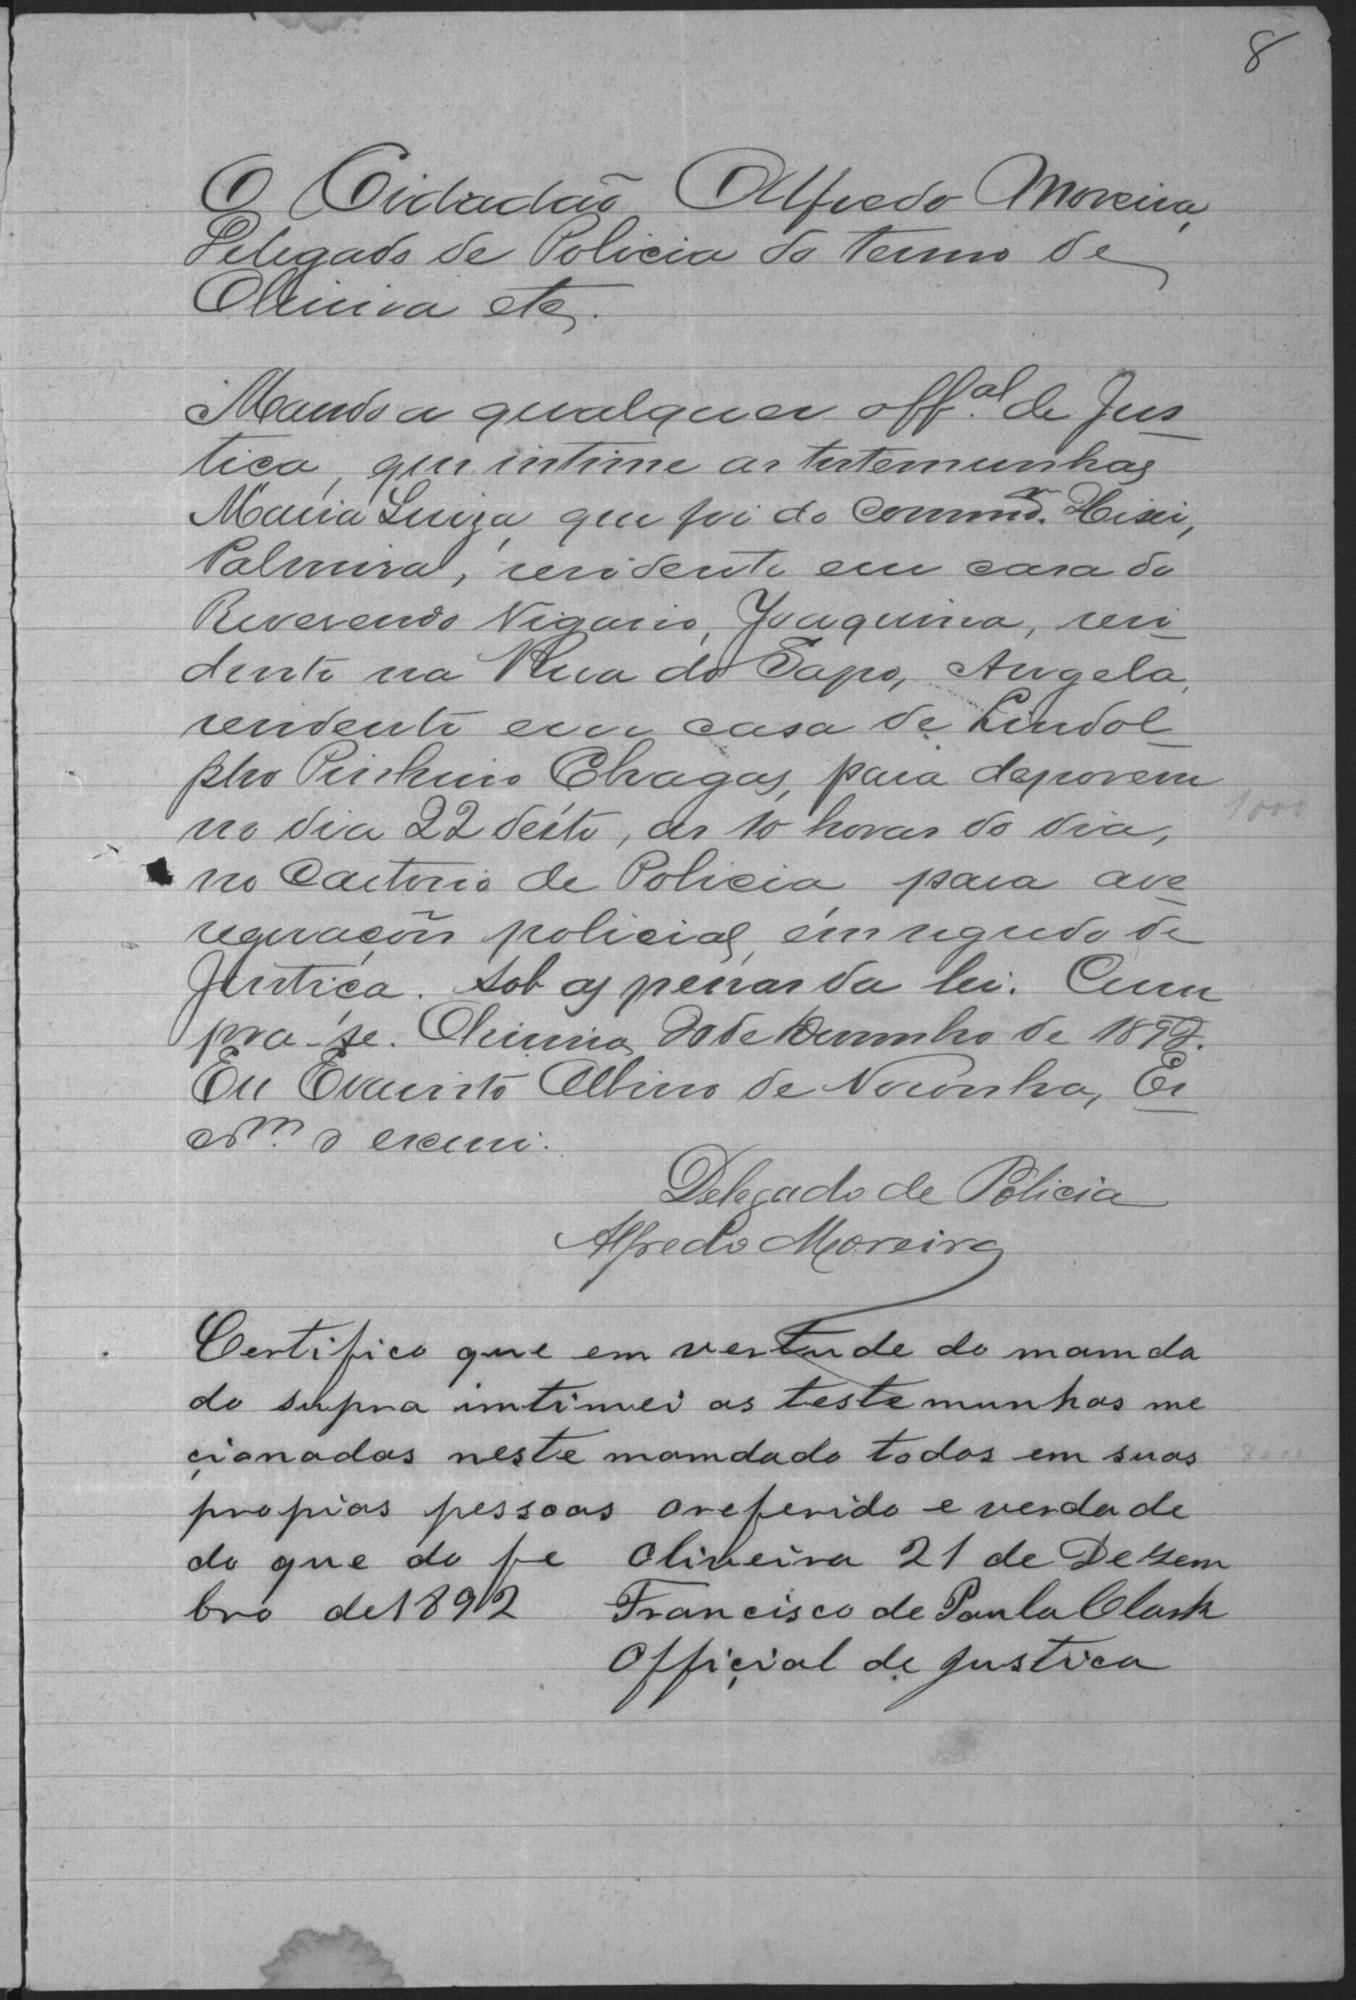 8
O Cidadão Alfredo Moreira,
Delegado de Policia do termo de
Oliveira etc.
Mando a qualquer off.al de Jus
tiça, que intime as testemunhas
Maria Luiza, que foi do Comm.dr
Palmira, residente em casa do
Reverendo Vigario, Joaquina, resi
dente na Rua do Sapo, Angela,
residente em casa de Lindol
pho Pinheiro Chagas, para deporem
no dia 22 deste, as 10 horas do dia,
no Cartorio de Policia, para ave
riguação policial, em segredo de
Justiça. Sob as penas da lei. Cum
pra-se. Oliveira, 20 de Dezembro de 1892.
Eu Evaristo Albino de Noronha, Es
cr.m o escrevi.
Delegado de Policia
Alfredo Moreira
Certifico que em vertude do mamda
do supra imtimei as testemunhas me
çionadas neste mamdado todas em suas
propias pessoas oreferido e verdade
do que do fe Oliveira 21 de Dezem
bro de 1892 Francisco de Paula Clark
Offiçial de justica